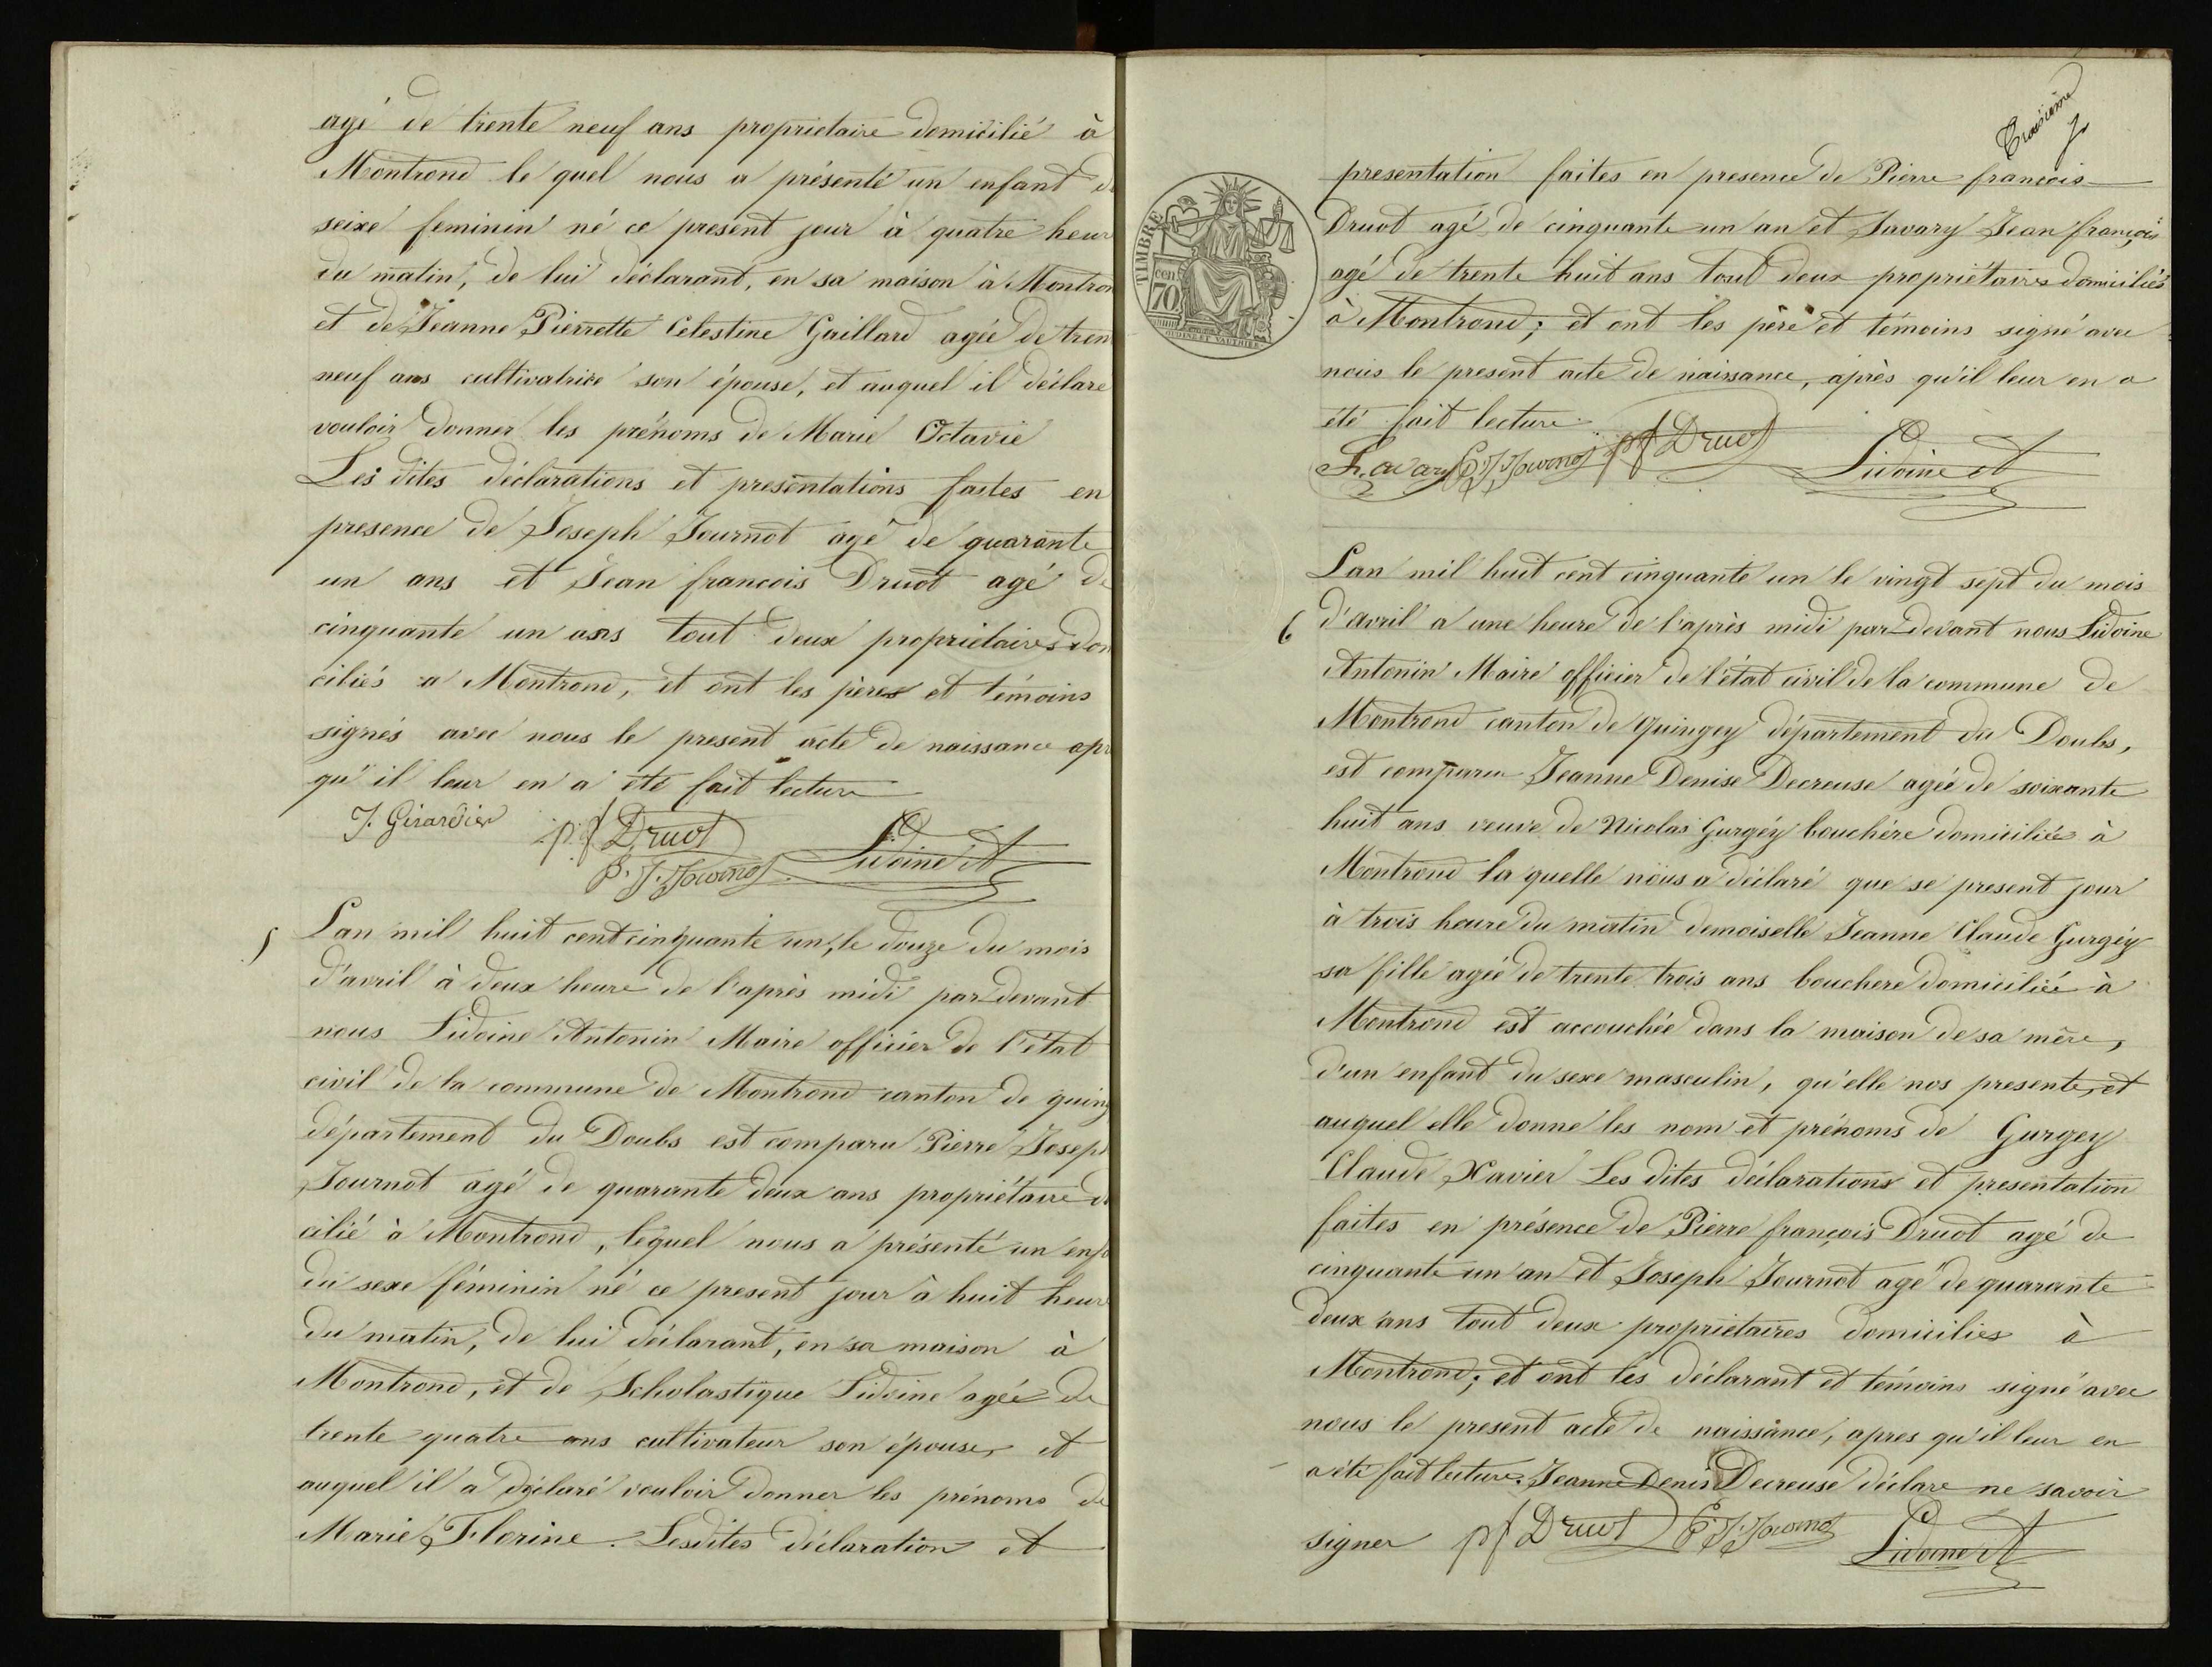 agé de trente neuf ans proprietaire domicilié à
Montrond le quel nous a présenté un enfant d
seixe feminin né ce present jour à quatre heur
du matin, de lui déclarant, en sa maison à Montron
et de Jeanne Pierrette Celestine Gaillard agée de tren
neuf ans cultivatrice son épouse, et auquel il déclare
vouloir donner les prénoms de Marie Octavie
Les dites déclarations et presentations faites en
presence de Joseph Journot agé de quarante
un ans et Jean francois Druot agé de
cinquante un ans tout deux proprietaires dom
ciliés a Montrond, et ont les pères et témoins
signés avec nous le present acte de naissance apr
qu'il leur en a été fait lecture
J. Girardier pf Druot
P. J. Journot Lidoine A
5 Lan mil huit cent cinquante un, le douze du mois
d'avril à deux heure de l'après midi par devant
nous Lidoine Antonin Maire officier de l'état
civil de la commune de Montrond canton de quing
département du Doubs est comparu Pierre Josep
Journot agé de quarante deux ans propriétaire d
cilié à Montrond, lequel nous a présenté un enf
du sexe féminin né ce present jour à huit heur
du matin, de lui déclarant, en sa maison à
Montrond, et de Scholastique Lidoine agée de
trente quatre ans cultivateur son épouse, et
auquel il a déclaré vouloir donner les prénoms de
Marie Florine. Lesdites déclaration et
Troisième
TIMBRE
cen
70
OUDINE ET VAUTHIER
presentation faites en presence de Pierre francois
Druot agé de cinquante un an et Savary Jean françois
agé de trente huit ans tout deux propriétaires domiciliés
à Montrond; et ont les père et témoins signé avec
nous le present acte de naissance, après qu'il leur en a
été fait lecture
Savary P. J. Journot pf Druot Lidoine A
Lan mil huit cent cinquante un le vingt sept du mois
6 d'avril a une heure de l'après midi par devant nous Lidoine
Antonin Maire officier de l'état civil de la commune de
Montrond canton de Quingey département du Doubs,
est comparu Jeanne Denise Decreuse agée de soixante
huit ans veuve de Nicolas Gurgéy bouchére domiciliée à
Montrond la quelle nous a déclaré que se present jour
à trois heure du matin demoiselle Jeanne Claude Gurgéy
sa fille agée de trente trois ans bouchere domiciliée à
Montrond est accouchée dans la maison de sa mère,
d'un enfant du sexe masculin, qu'elle nos presente, et
auquel elle donne les nom et prénoms de Gurgey
Claude Xavier Les dites déclarations et presentation
faites en présence de Pierre françois Druot agé de
cinquante un an et Joseph Journot agé de quarante
deux ans tout deux propriétaires domiciliés à
Montrond; et ont les déclarant et témoins signé avec
nous le present acte de naissance, apres qu'il leur en
a été fait lecture. Jeanne Denis Decreuse déclare ne savoir
signer pf Druot P. J. Journot Lidoine A